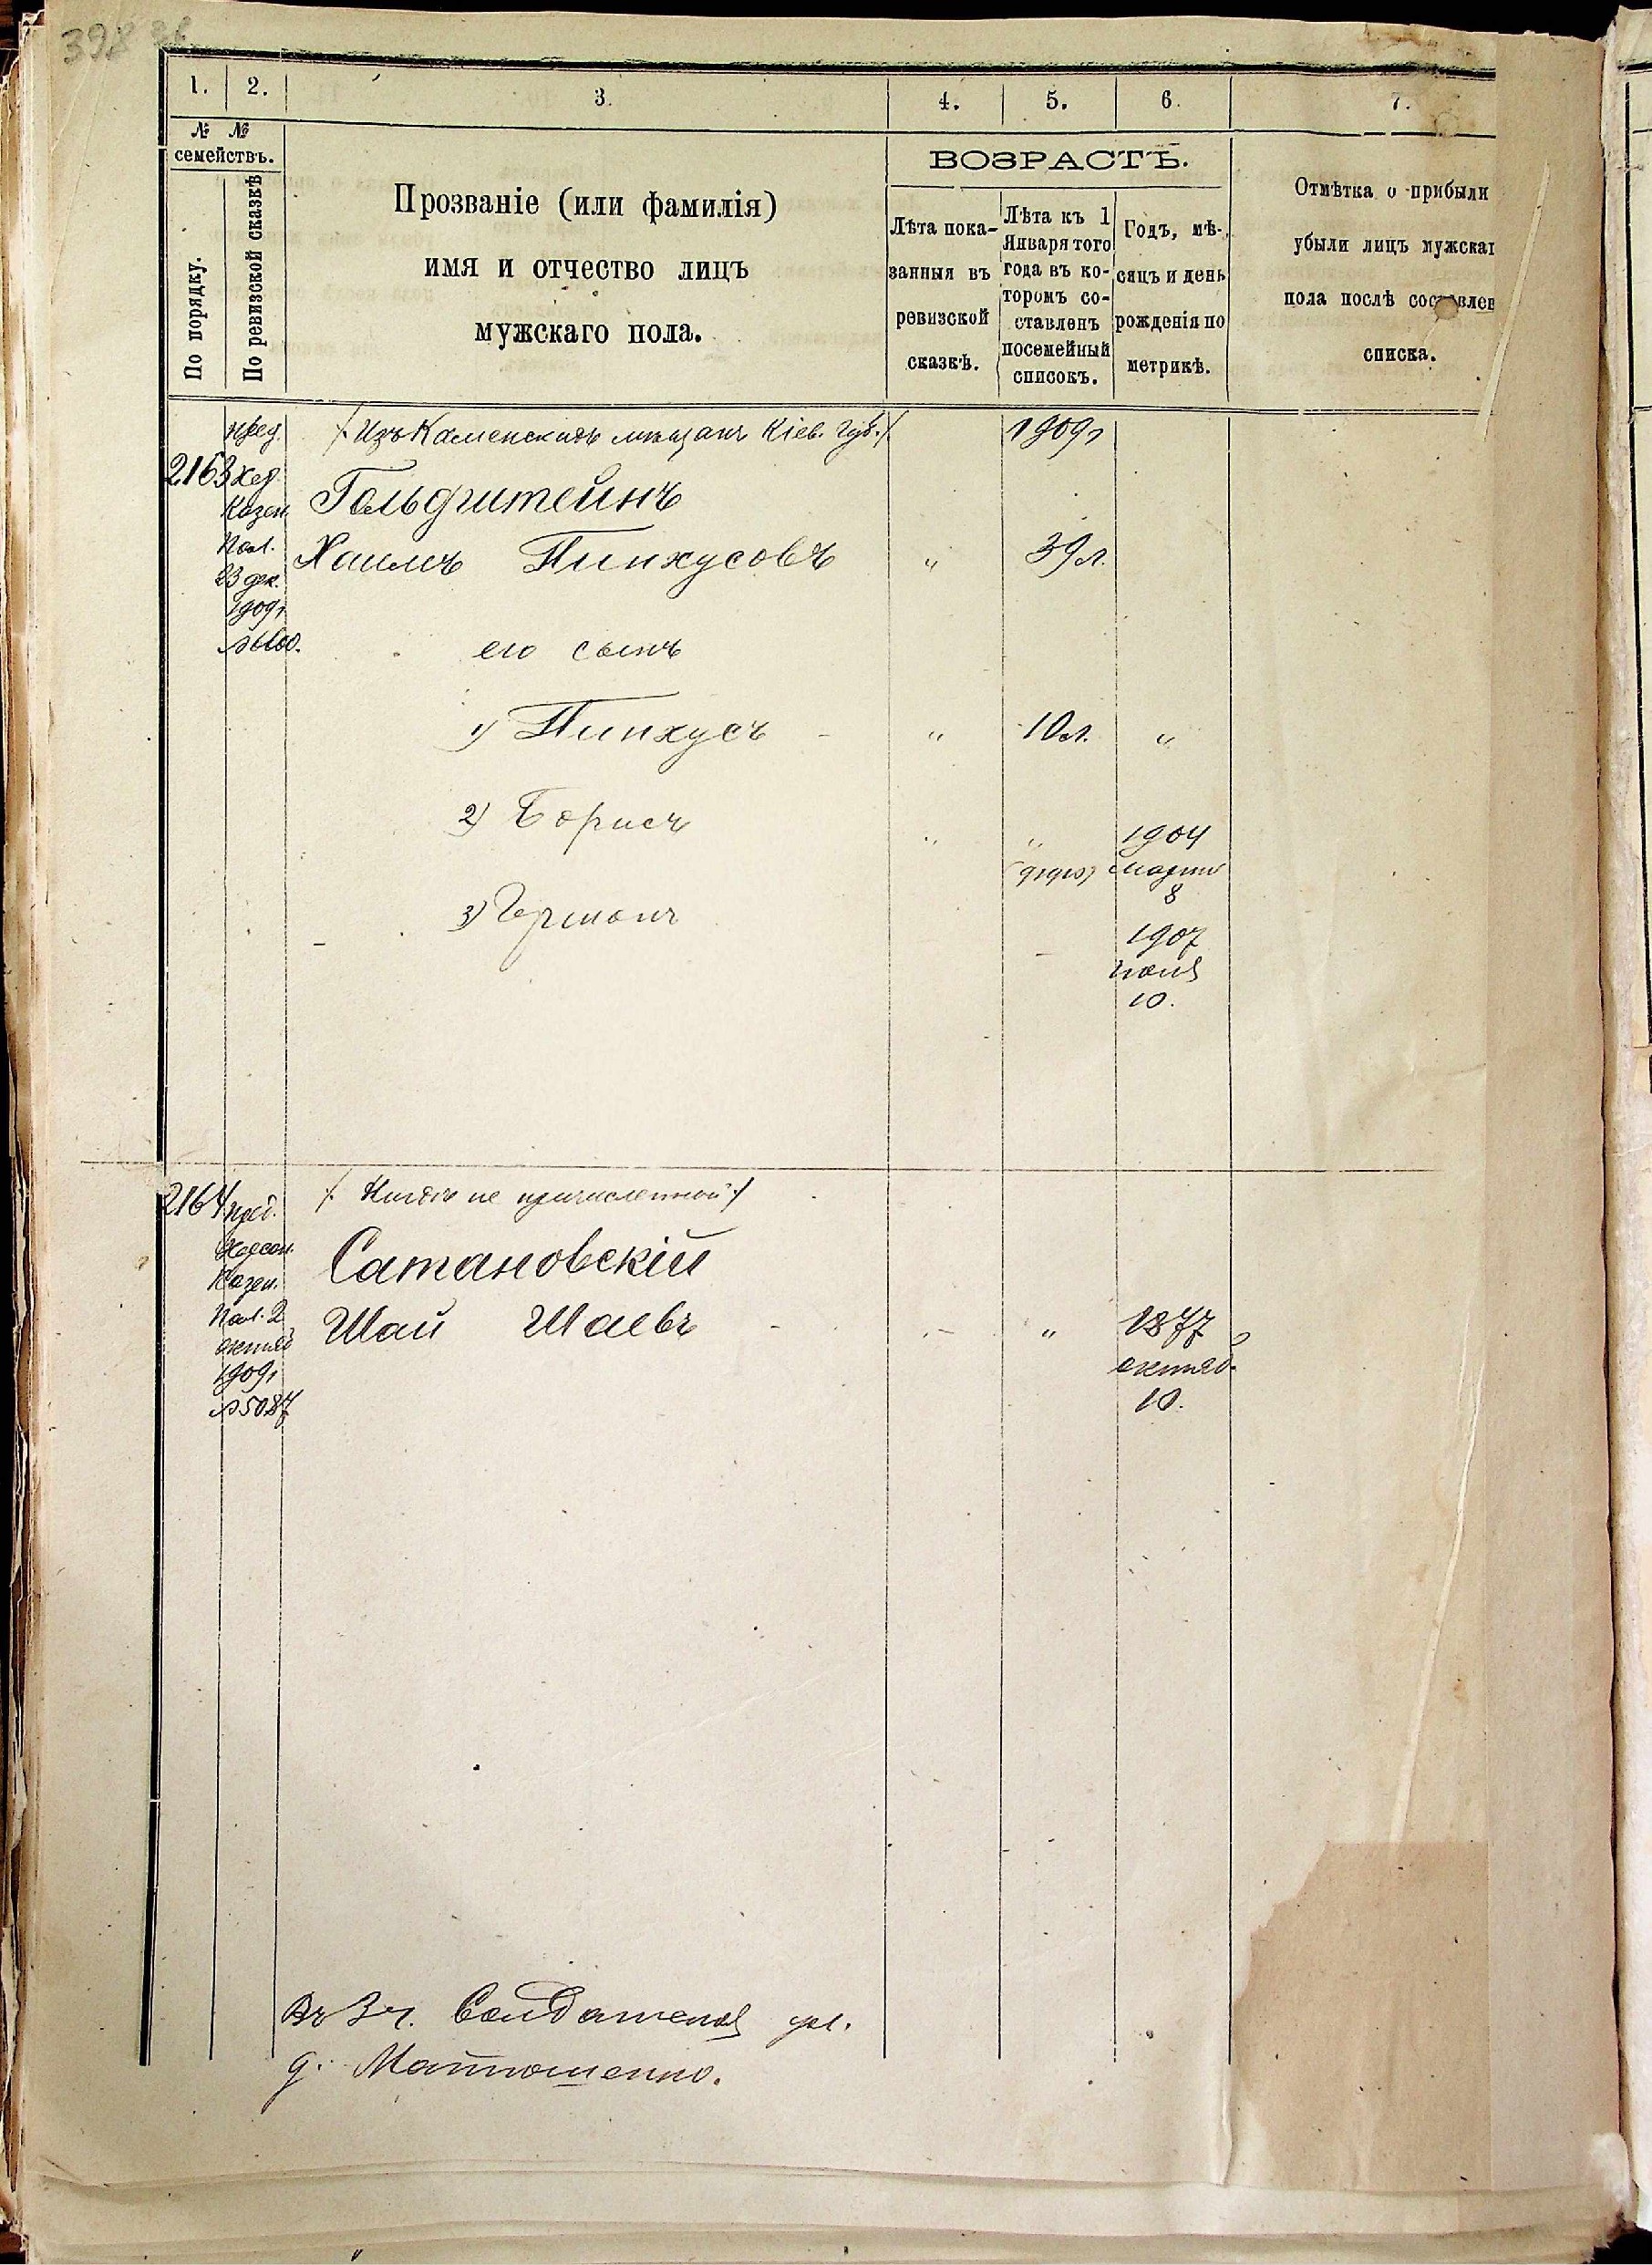 398 об
1. 2. 3. 4. 5. 6. 7.
№ №
семействъ.
По порядку.
По ревизской сказкѣ
Прозваніе (или фамилія)
имя и отчество лицъ
мужскаго пола.
ВОЗРАСТЪ.
Лѣта пока-
занныя въ
ревизской
сказкѣ.
Лѣта къ 1
Января того
года въ ко-
торомъ со-
ставленъ
посемейный
списокъ.
Годъ, мѣ-
сяцъ и день
рожденія по
метрикѣ.
Отмѣтка о прибыли
убыли лицъ мужскаг
пола послѣ составлен
списка.
2163
пред.
Хер.
Казен.
Пал.
23 дек.
1909 г
№ 6600.
/. Изъ Каменскихъ мѣщанъ Кіев. Губ. ./
1909 г
Гольдштейнъ
Хаимъ Пинхусовъ " 39 л.
его сынъ
1) Пинхусъ " 10 л. "
2) Борисъ " " 1904
марта
8
3) Германъ
1907
іюня
10.
2164
пред.
Херсон.
Казен.
Пал. 2
октяб
1909 г
№ 5087
/. Нигдѣ не причисленный ./
Сатановскій
Шай Шаевъ " " 1877
октяб.
10.
Въ 3 ч. Солдатская ул.
д. Матюшенко.